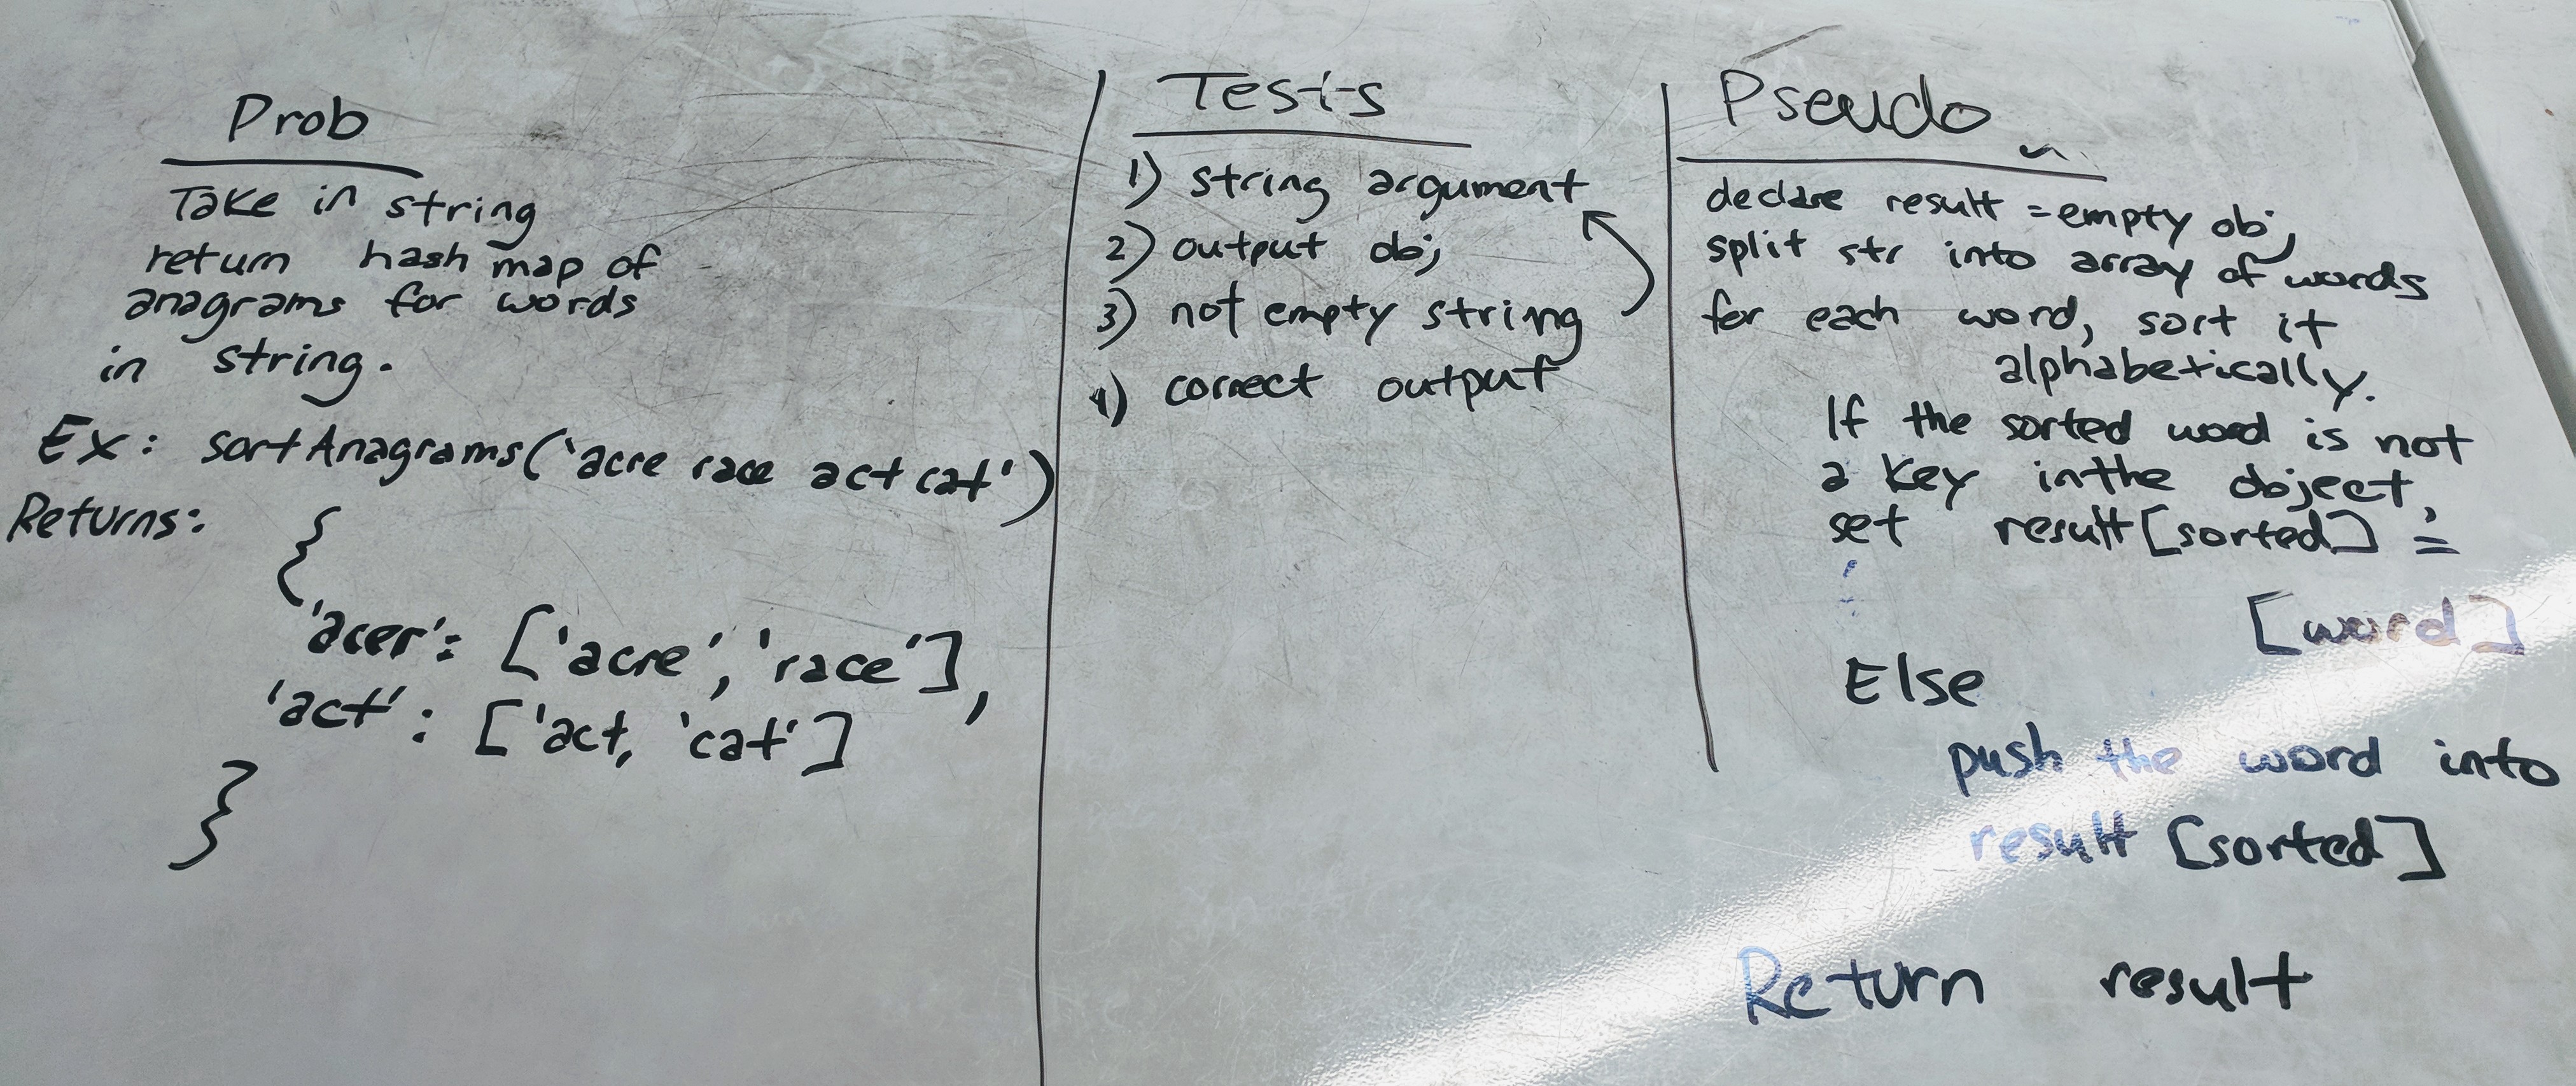 Prob
Take in string
return hash map of
anagrams for words
in string.
Ex: sortAnagrams('acre race act cat')
Returns:
{
'acer': ['acre', 'race'],
'act': ['act, 'cat']
}
Tests
1) string argument
2) output obj
3) not empty string
4) correct output
Pseudo
declare result = empty obj
split str into array of words
for each word, sort it
alphabetically.
If the sorted word is not
a key in the object,
set result[sorted] =
[word]
Else
push the word into
result [sorted]
Return result